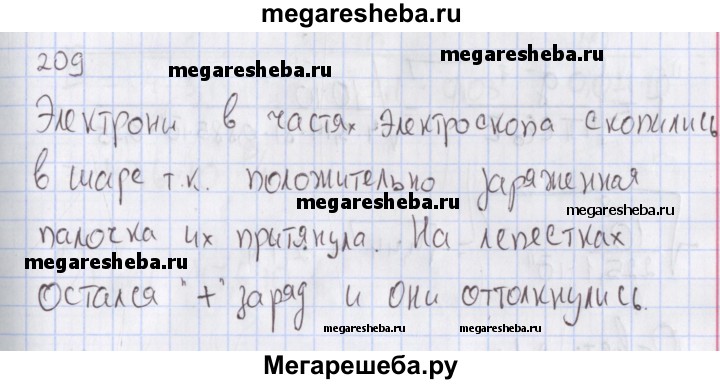 megaresheba.ru
209
megaresheba.ru megaresheba.ru
Электрони в частях электроскопа скопились
в шаре т.к. положительно заряженная
megaresheba.ru megaresheba.ru
палочка их притянула. На лепестках
megaresheba.ru
остался "+" заряд и они оттолкнулись.
megaresheba.ru megaresheba.ru
Мегарешеба.ру